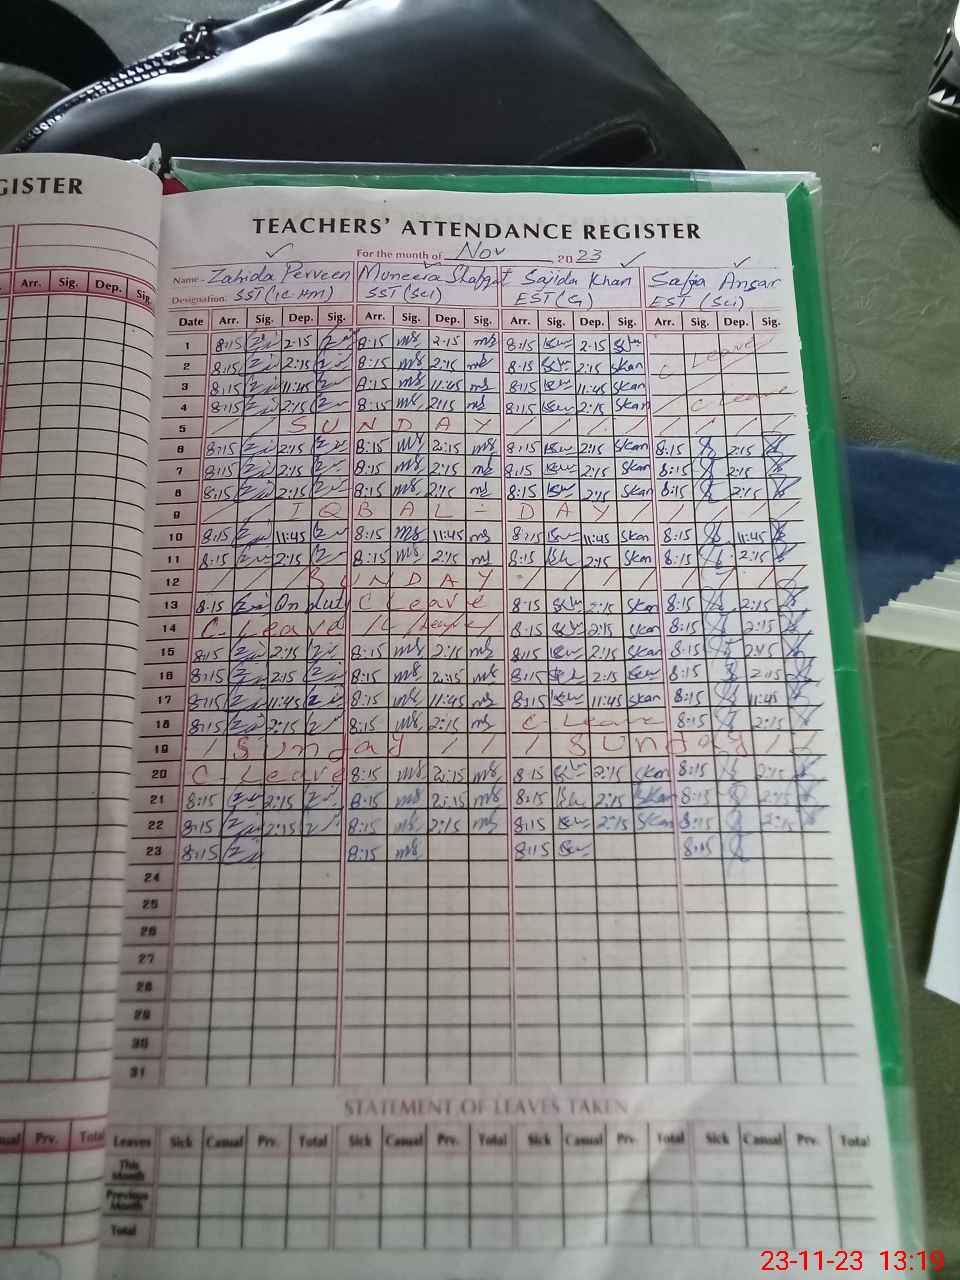 GISTER
TEACHERS' ATTENDANCE REGISTER
For the month of Nov 2023
Name - Zahida Perveen Muneera Shafqat Sajida Khan Safia Ansar
Designation: SST (Sci) EST (G) EST (Sci)
Arr. Sig. Dep. Sig.
Date Arr. Sig. Dep. Sig. Arr. Sig. Dep. Sig. Arr. Sig. Dep. Sig. Arr. Sig. Dep. Sig.
1 8:15 2:15 8:15 ms 2:15 ms 8:15 2:15 C Leave
2 8:15 2:15 8:15 ms 2:15 ms 8:15 2:15 Skan
3 8:15 11:45 8:15 ms 11:45 ms 8:15 11:45 Skan
4 8:15 2:15 8:15 ms 2:15 ms 8:15 2:15 Skan C. Leave
5 / / S U N D A Y / / / / / / /
6 8:15 2:15 8:15 ms 2:15 ms 8:15 2:15 Skan 8:15 2:15
7 8:15 2:15 8:15 ms 2:15 ms 8:15 2:15 Skan 8:15 2:15
8 8:15 2:15 8:15 ms 2:15 ms 8:15 2:15 Skan 8:15 2:15
9 / / I Q B A L - D A Y / / / / /
10 8:15 11:45 8:15 ms 11:45 ms 8:15 11:45 Skan 8:15 11:45
11 8:15 2:15 8:15 ms 2:15 ms 8:15 2:15 Skan 8:15 2:15
12 / / / S U N D A Y / / / / / / /
13 8:15 On duty C Leave 8:15 2:15 Skan 8:15 2:15
14 C. Leave / C / Leave / 8:15 2:15 Skan 8:15 2:15
15 8:15 2:15 8:15 ms 2:15 ms 8:15 2:15 Skan 8:15 2:15
16 8:15 2:15 8:15 ms 2:15 ms 8:15 2:15 8:15 2:15
17 8:15 11:45 8:15 ms 11:45 ms 8:15 11:45 Skan 8:15 11:45
18 8:15 2:15 8:15 ms 2:15 ms C - Leave 8:15 2:15
19 / Sunday / / / / Sunday / /
20 C. Leave 8:15 ms 2:15 ms 8:15 2:15 Skan 8:15 2:15
21 8:15 2:15 8:15 ms 2:15 ms 8:15 2:15 Skan 8:15 2:15
22 8:15 2:15 8:15 ms 2:15 ms 8:15 2:15 Skan 8:15 2:15
23 8:15 8:15 ms 8:15 8:15
24
25
26
27
28
29
30
31
STATEMENT OF LEAVES TAKEN
Prv. Total
Leaves Sick Casual Prv. Total Sick Casual Prv. Total Sick Casual Prv. Total Sick Casual Prv. Total
This Month
Previous Month
Total
23-11-23 13:19